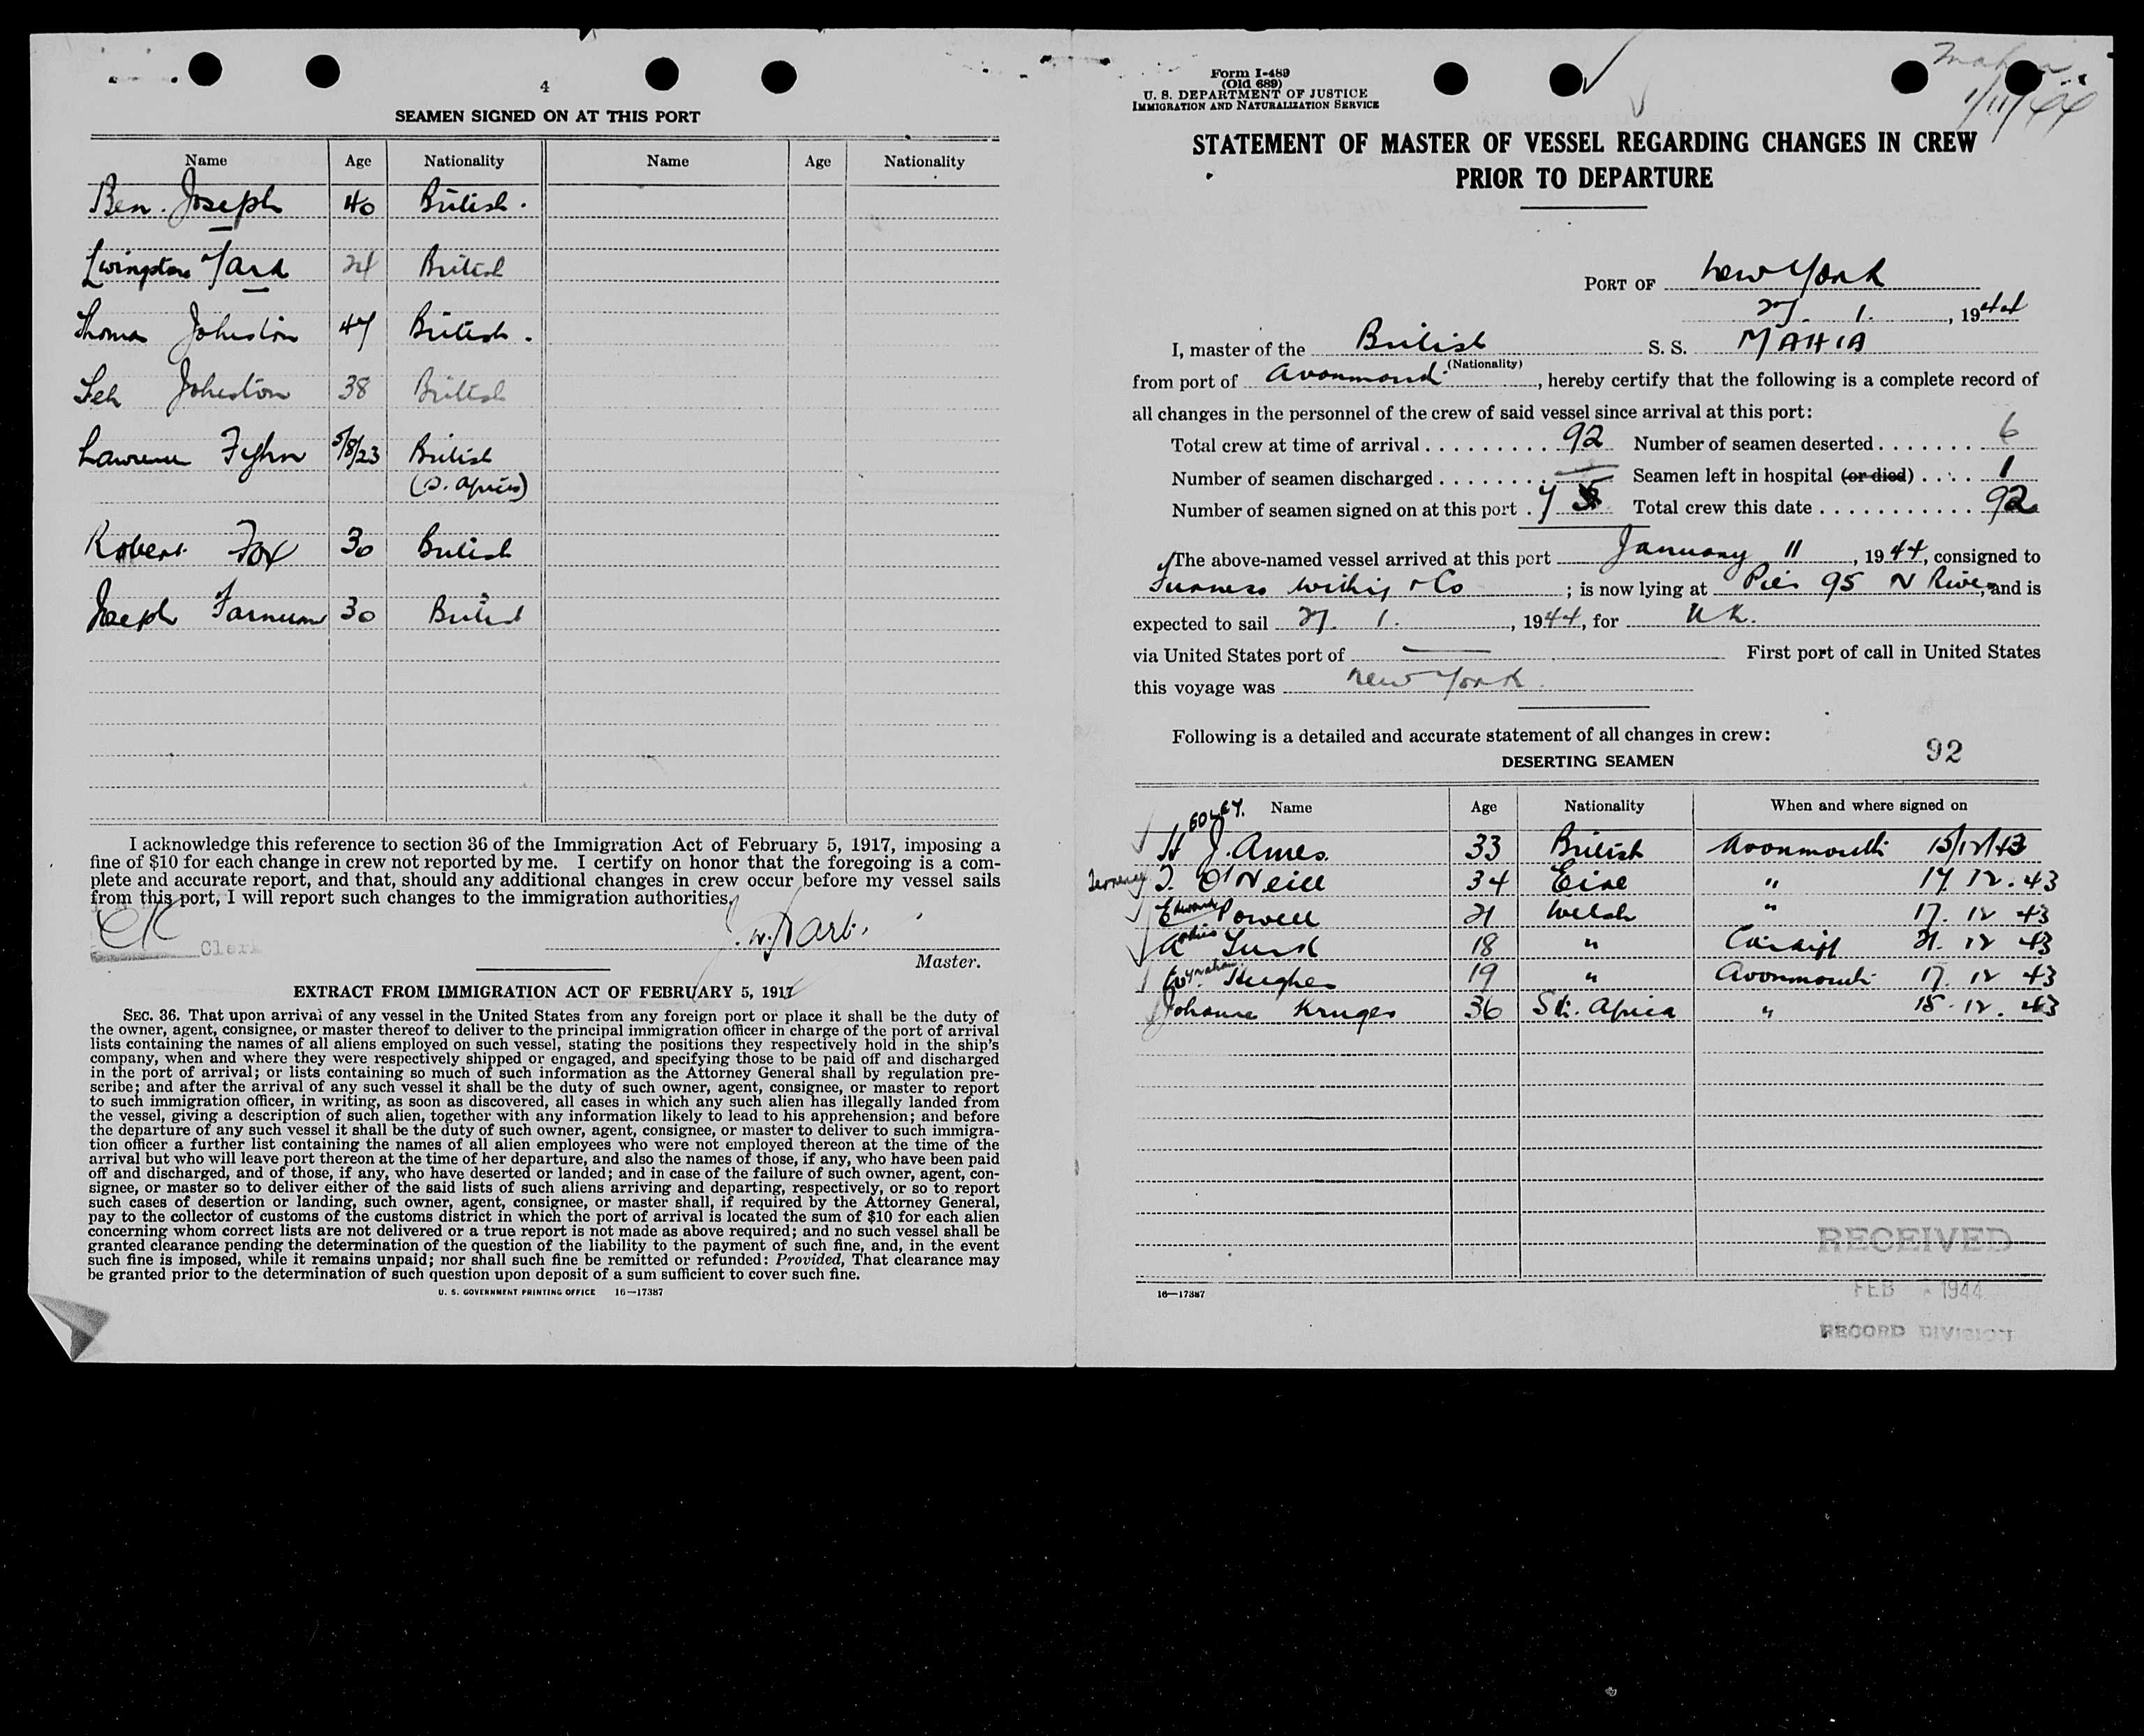 4
SEAMEN SIGNED ON AT THIS PORT
Name Age Nationality Name Age Nationality
Ben. Joseph 40 British.
Livingstone 24 British
Thomas Johnston 47 British.
Johnston 38 British
Lawrence 5/8/23 British
(S. Africa)
Robert Fox 30 British
Joseph Farnum 30 British
I acknowledge this reference to section 36 of the Immigration Act of February 5, 1917, imposing a
fine of $10 for each change in crew not reported by me. I certify on honor that the foregoing is a com-
plete and accurate report, and that, should any additional changes in crew occur before my vessel sails
from this port, I will report such changes to the immigration authorities.
Clerk
Master.
EXTRACT FROM IMMIGRATION ACT OF FEBRUARY 5, 1917
SEC. 36. That upon arrival of any vessel in the United States from any foreign port or place it shall be the duty of
the owner, agent, consignee, or master thereof to deliver to the principal immigration officer in charge of the port of arrival
lists containing the names of all aliens employed on such vessel, stating the positions they respectively hold in the ship's
company, when and where they were respectively shipped or engaged, and specifying those to be paid off and discharged
in the port of arrival; or lists containing so much of such information as the Attorney General shall by regulation pre-
scribe; and after the arrival of any such vessel it shall be the duty of such owner, agent, consignee, or master to report
to such immigration officer, in writing, as soon as discovered, all cases in which any such alien has illegally landed from
the vessel, giving a description of such alien, together with any information likely to lead to his apprehension; and before
the departure of any such vessel it shall be the duty of such owner, agent, consignee, or master to deliver to such immigra-
tion officer a further list containing the names of all alien employees who were not employed thereon at the time of the
arrival but who will leave port thereon at the time of her departure, and also the names of those, if any, who have been paid
off and discharged, and of those, if any, who have deserted or landed; and in case of the failure of such owner, agent, con-
signee, or master so to deliver either of the said lists of such aliens arriving and departing, respectively, or so to report
such cases of desertion or landing, such owner, agent, consignee, or master shall, if required by the Attorney General,
pay to the collector of customs of the customs district in which the port of arrival is located the sum of $10 for each alien
concerning whom correct lists are not delivered or a true report is not made as above required; and no such vessel shall be
granted clearance pending the determination of the question of the liability to the payment of such fine, and, in the event
such fine is imposed, while it remains unpaid; nor shall such fine be remitted or refunded: Provided, That clearance may
be granted prior to the determination of such question upon deposit of a sum sufficient to cover such fine.
U. S. GOVERNMENT PRINTING OFFICE 16—17387
Mahia
1/11/44
Form I-489
(Old 689)
U. S. DEPARTMENT OF JUSTICE
IMMIGRATION AND NATURALIZATION SERVICE
STATEMENT OF MASTER OF VESSEL REGARDING CHANGES IN CREW
PRIOR TO DEPARTURE
PORT OF New York
27. 1. , 1944
I, master of the British S. S. MAHIA
(Nationality)
from port of Avonmouth, hereby certify that the following is a complete record of
all changes in the personnel of the crew of said vessel since arrival at this port:
Total crew at time of arrival 92 Number of seamen deserted 6
Number of seamen discharged — Seamen left in hospital (or died) 1
Number of seamen signed on at this port 7 Total crew this date 92
The above-named vessel arrived at this port January 11, 1944, consigned to
Furness Withy & Co ; is now lying at Pier 95 N River, and is
expected to sail 27. 1. , 1944, for UK.
via United States port of — First port of call in United States
this voyage was New York.
Following is a detailed and accurate statement of all changes in crew:
DESERTING SEAMEN 92
Name Age Nationality When and where signed on
H J. Ames 33 British Avonmouth 15/12/43
T. O'Neill 34 Eire " 17. 12. 43
Edward Powell 21 Welsh " 17. 12 43
18 " Cardiff 21. 12 43
Hughes 19 " Avonmouth 17. 12 43
Johanne Kruger 36 Sth. Africa " 15. 12. 43
16—17387
RECEIVED
FEB 1944
RECORD DIVISION